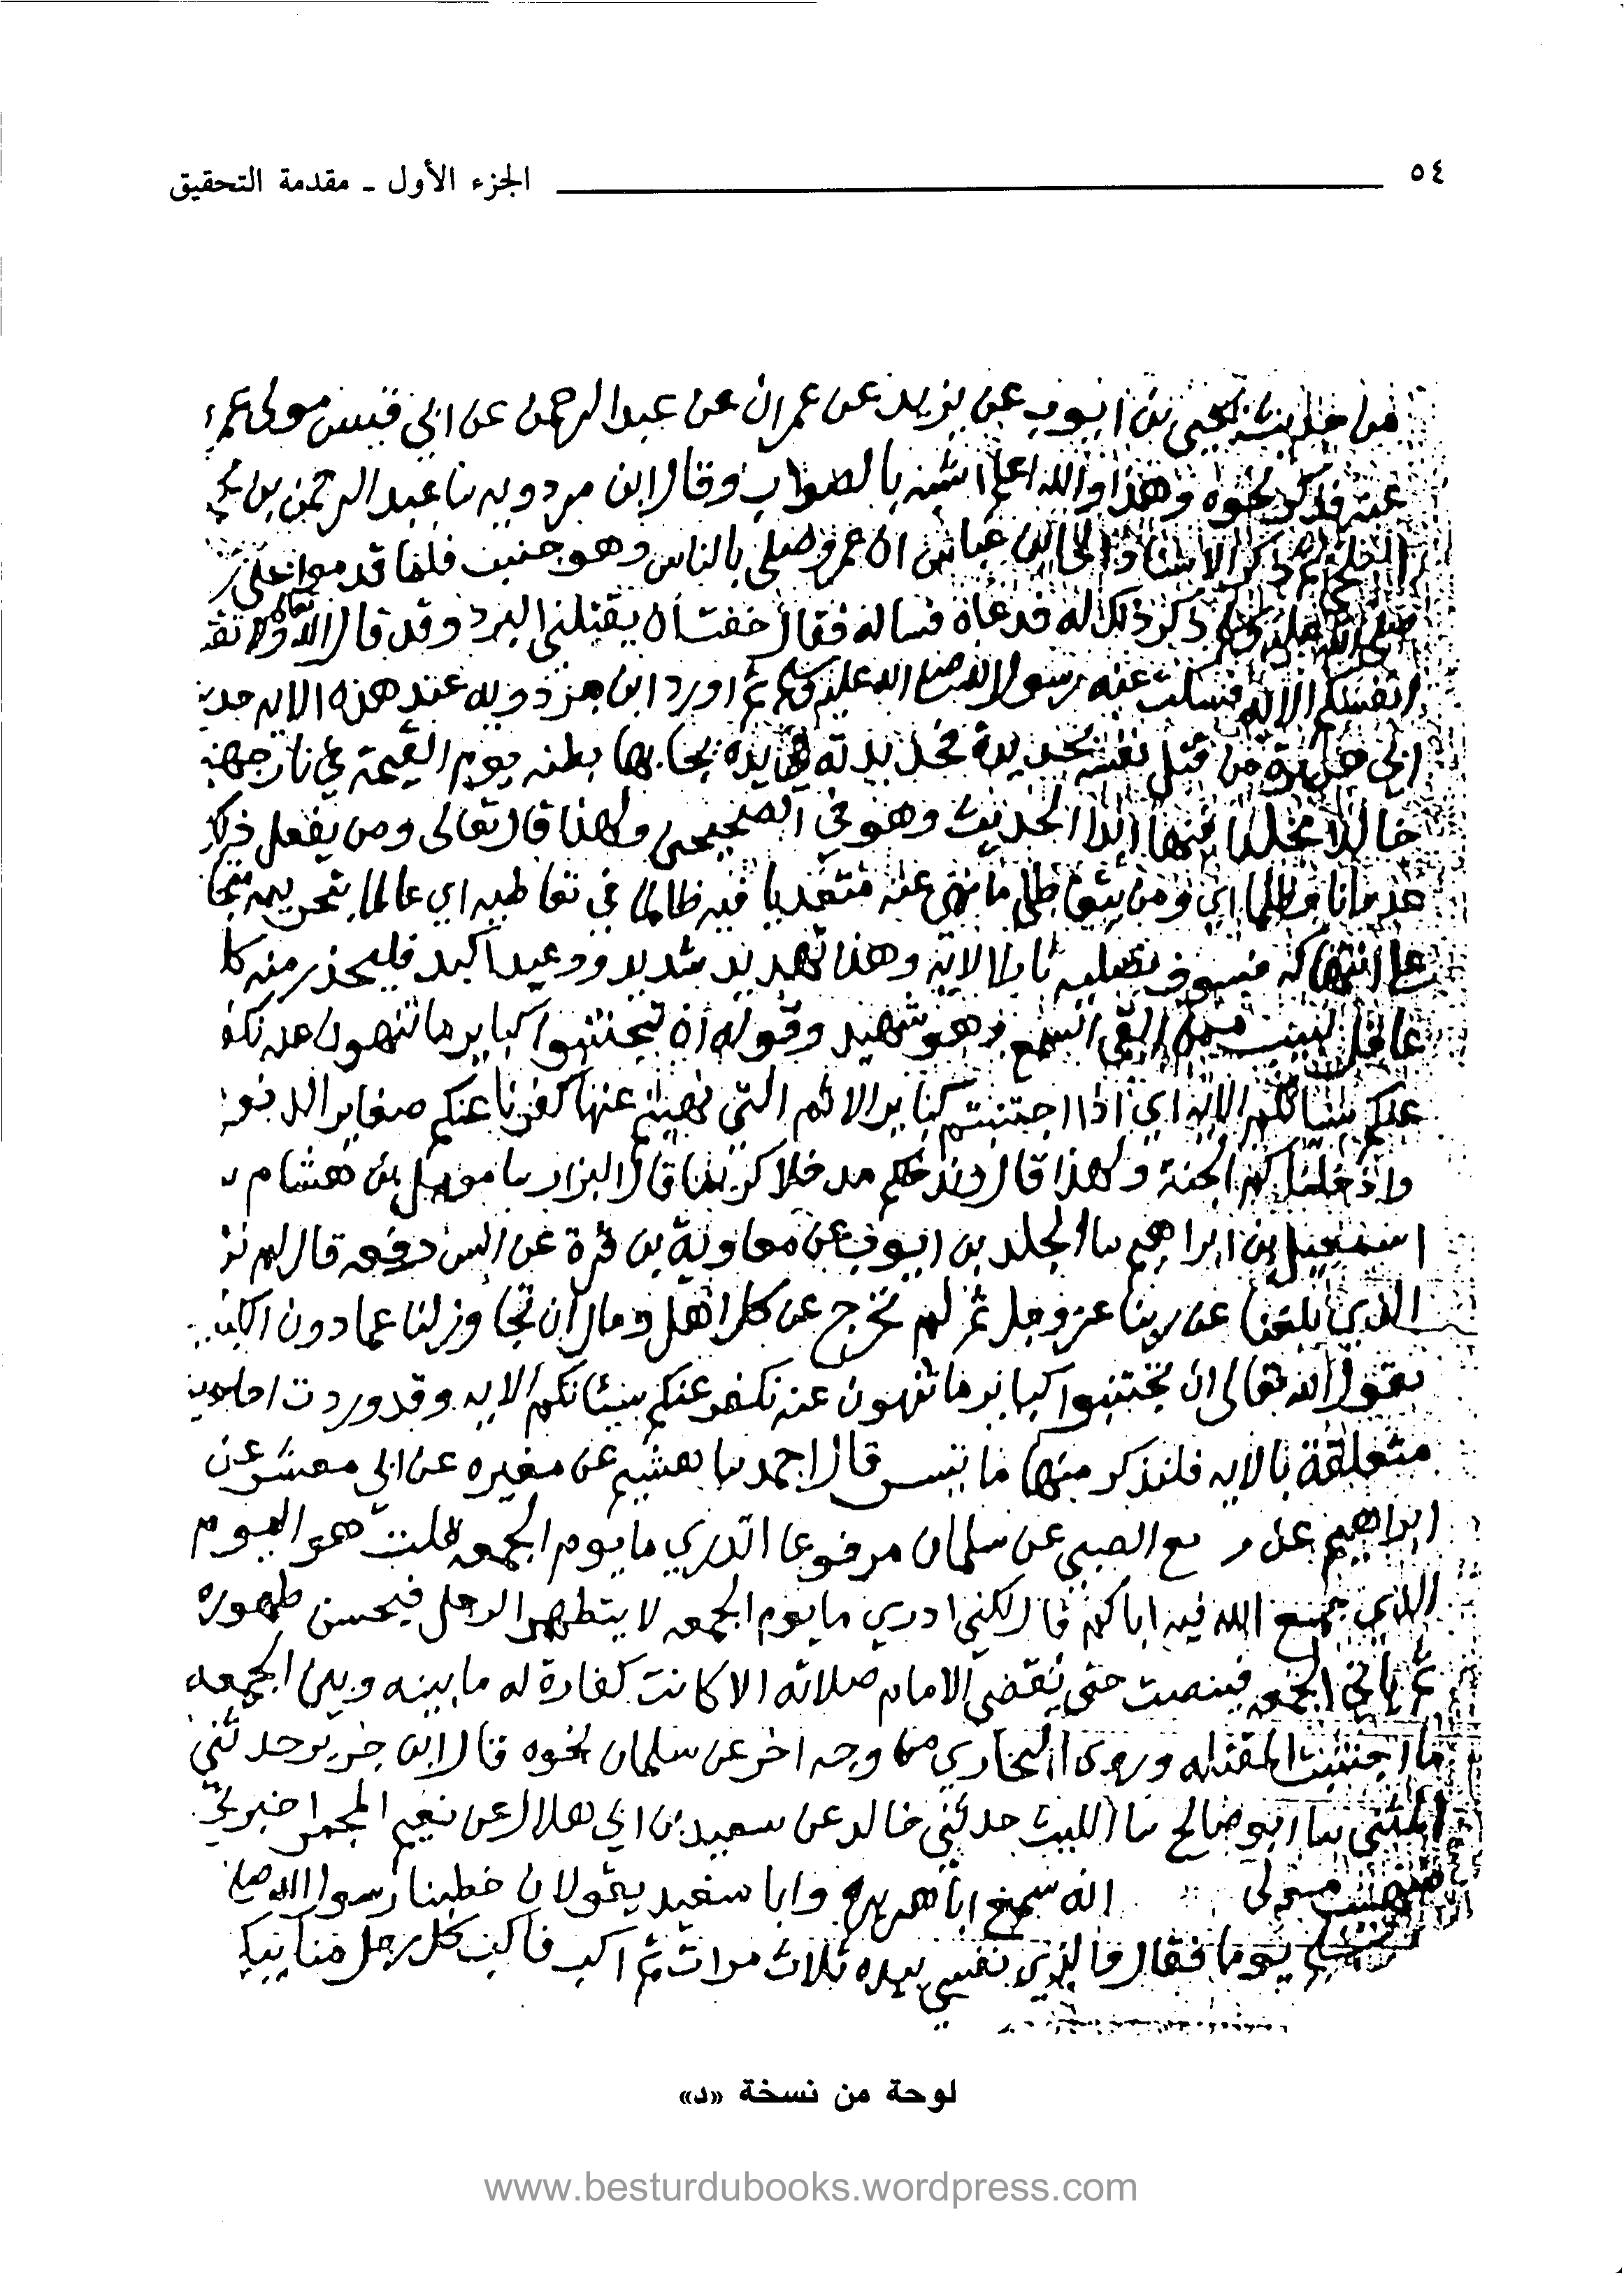 ٥٤ الجزء الأول ـ مقدمة التحقيق
من حديث يحيى بن ايوب عن يزيد عن عمران عن عبد الرحمن عن ابي قيس مولى عمرو
عنه فذكر نحوه وهذا والله اعلم اشبه بالصواب وقال ابن مردويه سا عبد الرحمن بن
ابن عباس ان عمرو صلى بالناس وهو جنب فلما قدموا على
ذكر ذلك له فدعاه فساله فقال خفت ان يقتلني البرد وقد قال الله تعالى ولا تقتـ
انفسكم الايه فسكت عنه رسول الله صلى الله عليه وسلم ثم اورد ابن مردويه عند هذه الايه حديث
ابي هريرة من قتل نفسه بحديدة فحديدته في يده يجا بها بطنه يوم القيمة في نار جهنم
خالدا مخلدا فيها ابدا الحديث وهو في الصحيحين ولهذا قال تعالى ومن يفعل ذلك
عدوانا وظلما اي ومن يتعاطى ما نهى عنه متعديا فيه ظالما في تعاطيه اي عالما بتحريمه متجا
على انتهاكه فسوف نصليه نارا الايه وهذا تهديد شديد ووعيد اكيد فليحذر منه كل
عاقل لبيب ممن القى السمع وهو شهيد وقوله ان تجتنبوا كباير ما تنهون عنه نكفر
عنكم سياتكم الايه اي اذا اجتنبتم كباير الاثم التي نهيتم عنها كفرنا عنكم صغاير الذنوب
وادخلناكم الجنة ولهذا قال وندخلكم مدخلا كريما قال البزار سا مومل بن هشام
اسمعيل بن ابراهيم سا الجلد بن ايوب عن معاوية بن قرة عن انس رفعه قال لم نر
الذي بلغنا عن ربنا عز وجل ثم لم نخرج عن كل اهل ومال ان تجاوز لنا عما دون الكبا
يقول الله تعالى ان تجتنبوا كبائر ما تنهون عنه نكفر عنكم سيئاتكم الايه وقد وردت احاديث
متعلقة بالايه فلنذكر منها ما تيسر قال احمد سا هشيم عن مغيره عن ابي معشر عن
ابراهيم عن مربع الضبي عن سلمان مرفوعا اتدري ما يوم الجمعه قلت هو اليوم
الذي جمع الله فيه اباكم قال لكني ادري ما يوم الجمعه لا يتطهر الرجل فيحسن طهوره
ثم ياتي الجمعه فينصت حتى يقضي الامام صلاته الا كانت كفارة له ما بينه وبين الجمعه
ما اجتنبت المقتله وروى البخاري من وجه اخر عن سلمان نحوه قال ابن جرير حدثني
المثنى سا ابو صالح سا الليث حدثني خالد عن سعيد بن ابي هلال عن نعيم المجمر اخبرني
صهيب مولى انه سمع ابا هريره وابا سعيد يقولان خطبنا رسول الله صلى
يوما فقال والذي نفسي بيده ثلاث مرات ثم اكب فاكب كل رجل منا يبكي
لوحة من نسخة «د»
www.besturdubooks.wordpress.com